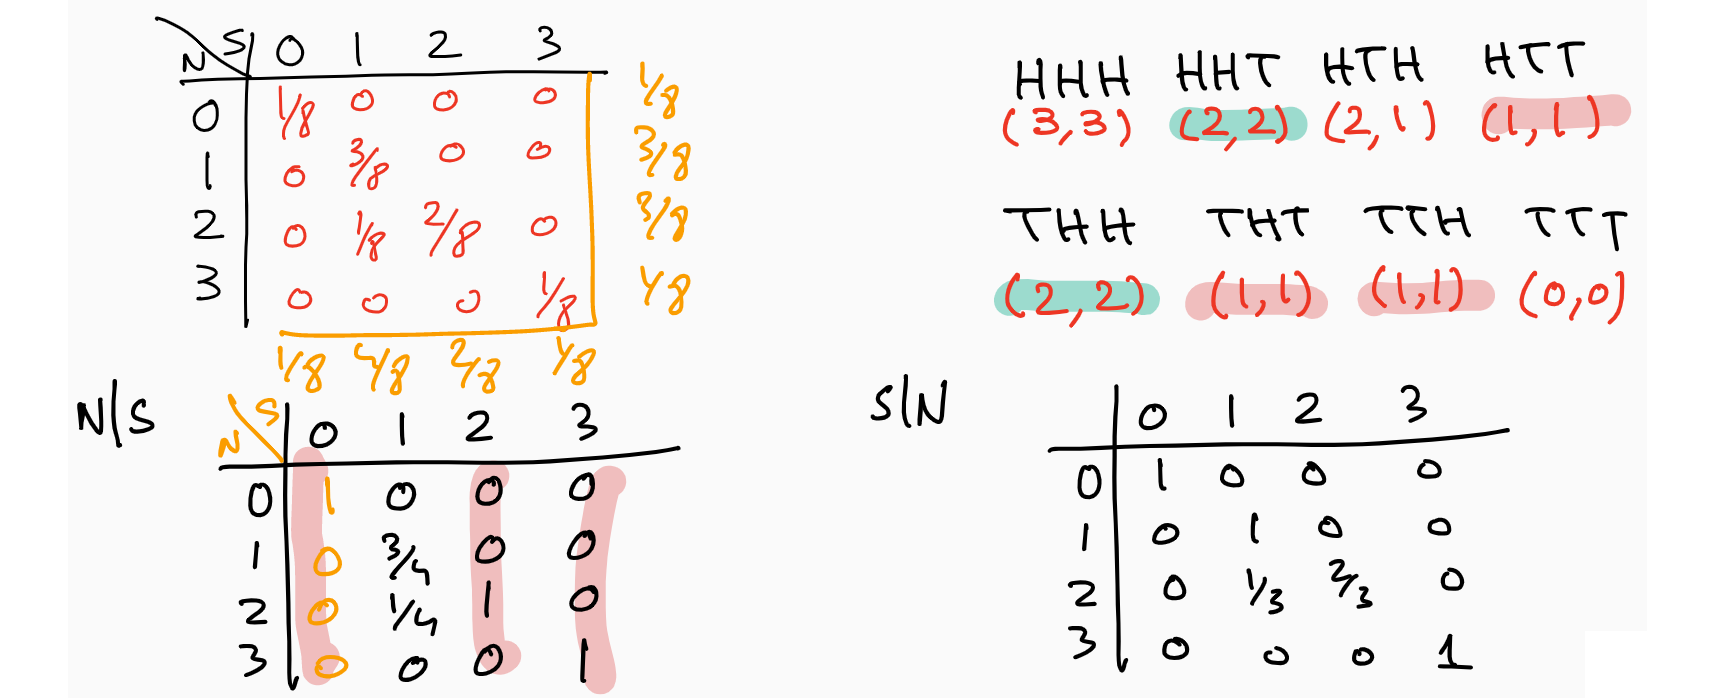 N S 0 1 2 3
0 1/8 0 0 0 1/8
1 0 3/8 0 0 3/8
2 0 1/8 2/8 0 3/8
3 0 0 0 1/8 1/8
1/8 4/8 2/8 1/8
HHH HHT HTH HTT
(3,3) (2,2) (2,1) (1,1)
THH THT TTH TTT
(2,2) (1,1) (1,1) (0,0)
N|S
N S 0 1 2 3
0 1 0 0 0
1 0 3/4 0 0
2 0 1/4 1 0
3 0 0 0 1
S|N
0 1 2 3
0 1 0 0 0
1 0 1 0 0
2 0 1/3 2/3 0
3 0 0 0 1